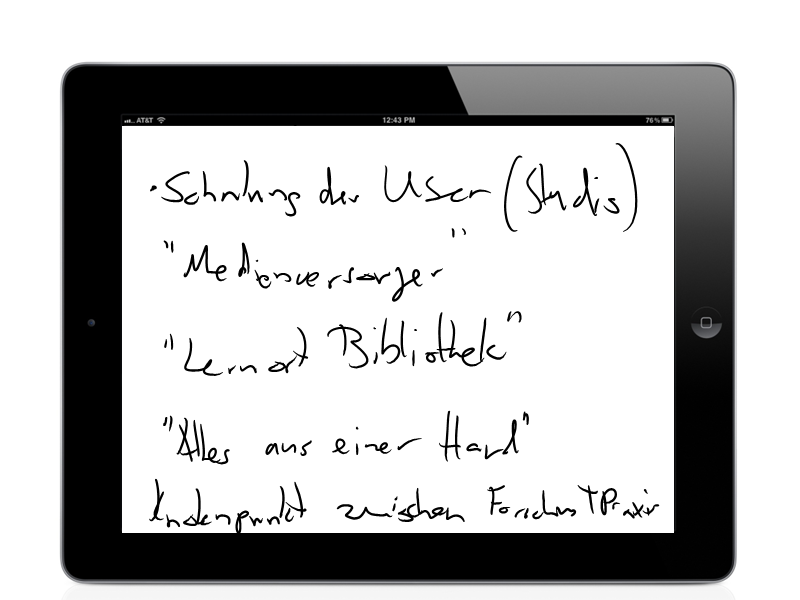 AT&T 12:43 PM 76%
• Schulung der User (Studis)
"Medienversorger"
"Lernort Bibliothek"
"Alles aus einer Hand"
Knotenpunkt zwischen Forschung + Praxis